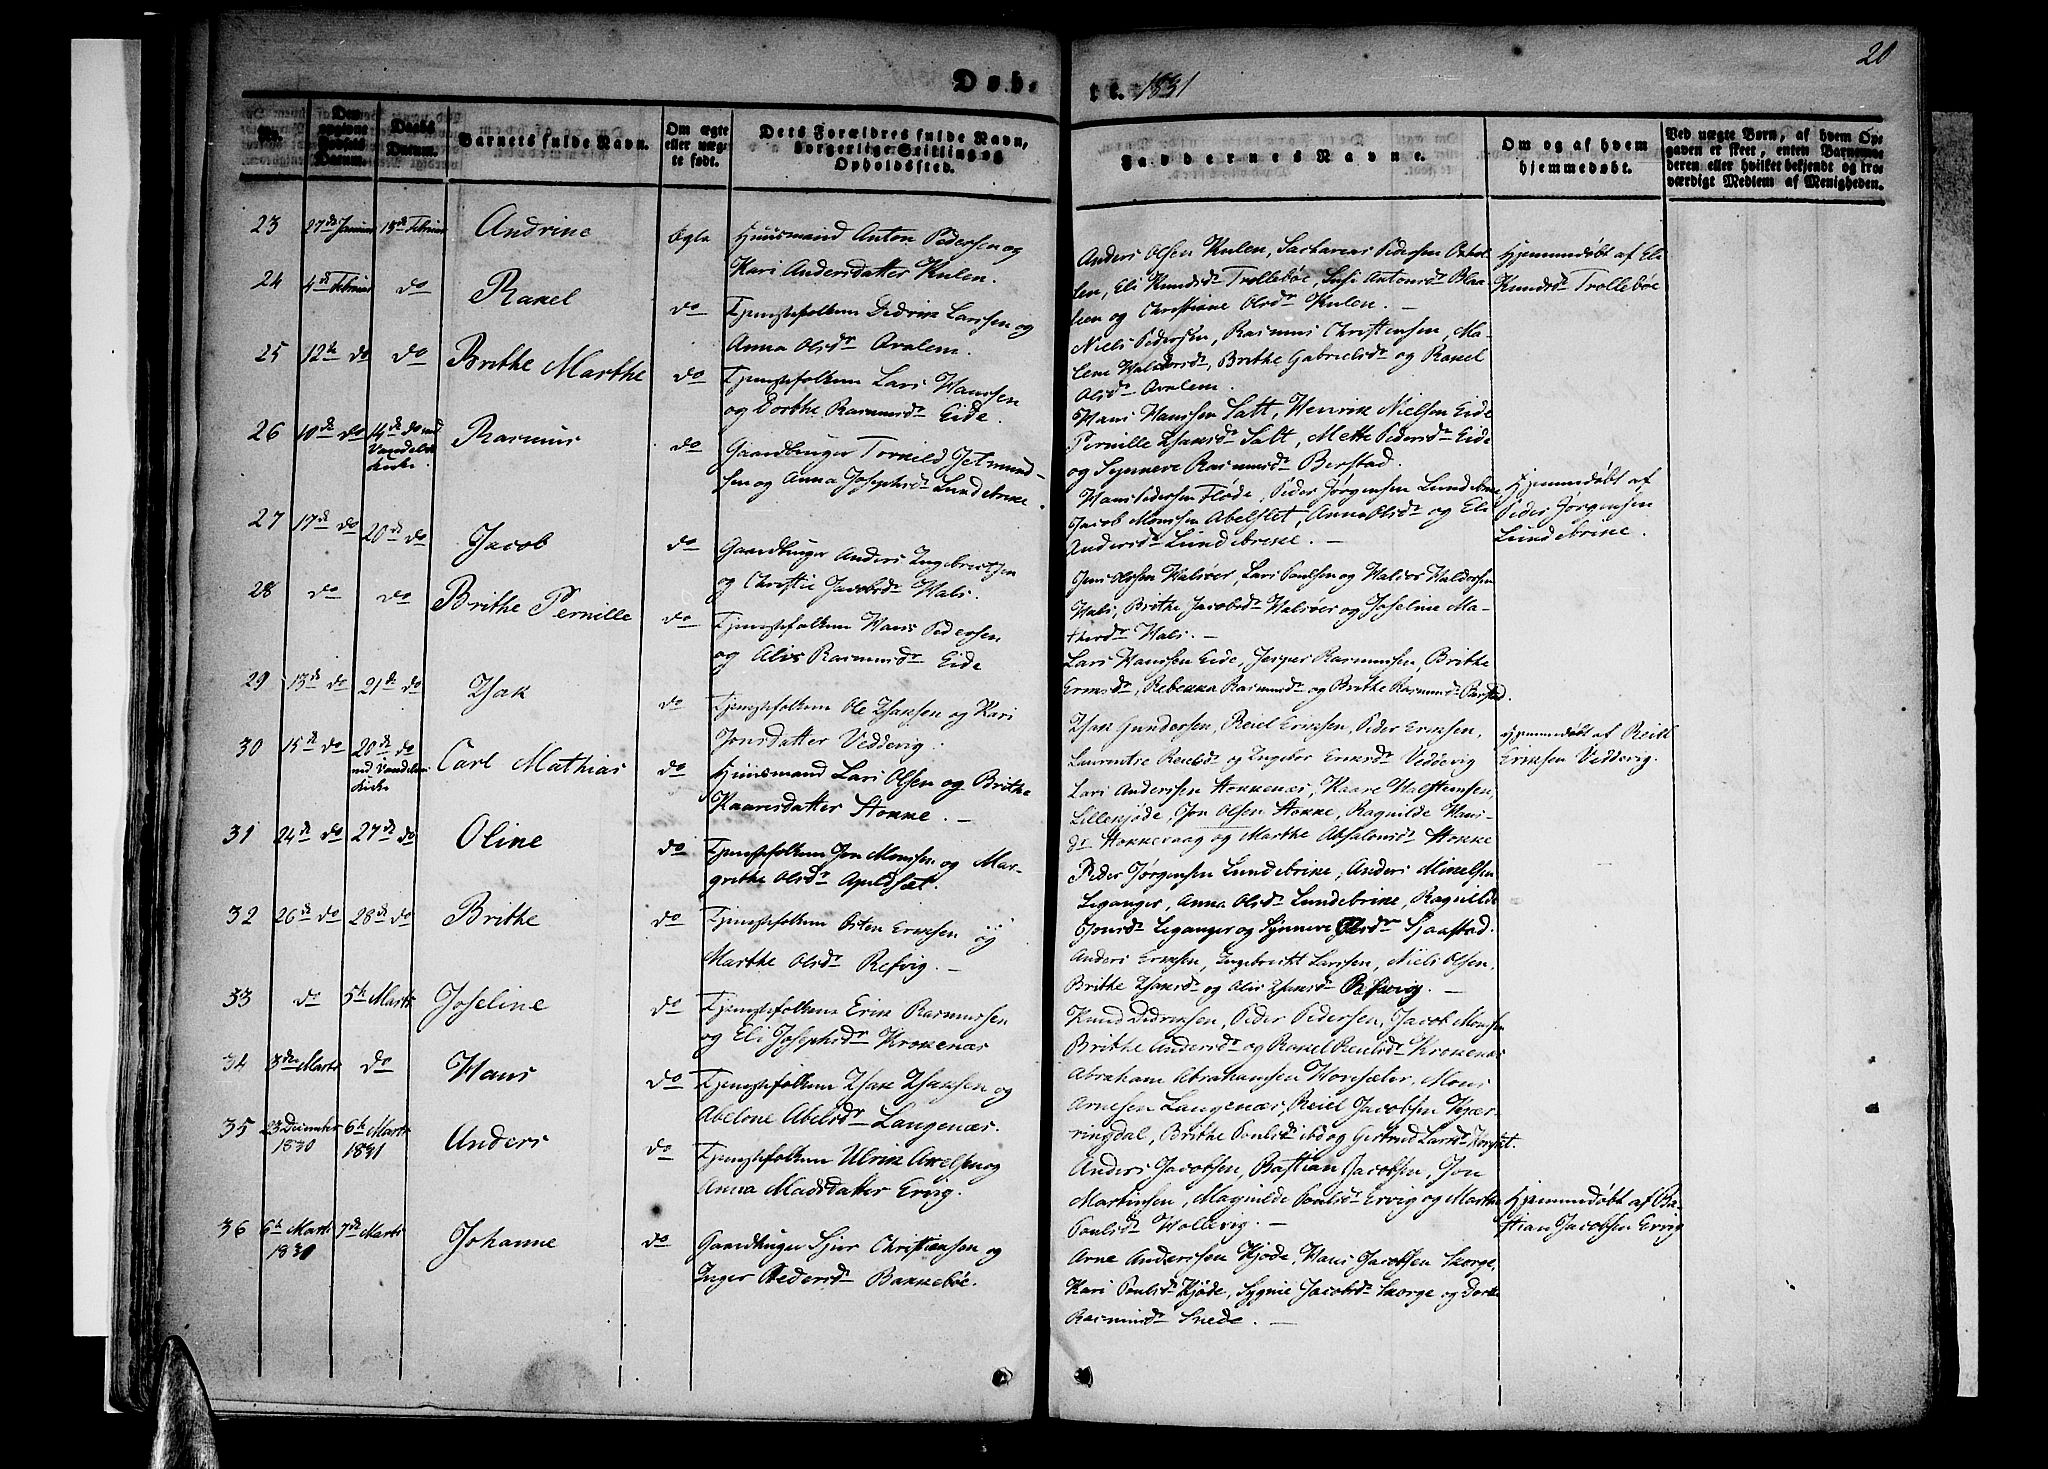 20
Døbte. 1831
No.
Den opgivne Fødsels Datum.
Daabs Datum.
Barnets fulde Navn.
Om ægte eller uægte født.
Dets Forældres fulde Navn, borgerlige Stilling og Opholdssted.
Faddernes Navne.
Om og af hvem hjemmedøbt.
Ved uægte Børn, af hvem Opgaven er skeet, enten Barnemoderen eller hvilket bekjendt og troværdigt Medlem af Menigheden.
23 27de Januar 13de Februar Andrine Ægte Huusmand Anton Pedersen og
Kari Andersdatter Kulen.
Anders Olsen Kulen, Sacharias Pedersen
Eli Knudsdr Trolleböe, Antonsdr
og Christiane Olsdr Kulen. —
Hjemmedøbt af Eli
Knudsdr Trolleböe
24 4de Februar do Rakel do Tjenestefolkene Didrik Larssen og
Anna Olsdr Aralem.
Niels Pedersen, Rasmus Christensen, Ma-
lene Waldersdr, Brithe Gabrielsdr og Rakel
Olsdr Aralem.
25 12te do do Brithe Marthe do Tjenestefolkene Lars Hanssen
og Dorthe Rasmusdr Eide.
Hans Hanssen Satt, Henrik Nielsen Eide
Pernille Isaksdr Satt, Mette Pedersdr Eide
og Synneve Rasmusdr Berstad.
26 10de do 14de do ved
Vaagelv
Kirke.
Rasmus do Gaardbruger Tornild Jetmund-
sen og Anna Josephsdr Lundebrekke.
Hans Pedersen Flöde, Peder Jørgensen Lundebrekke
Jacob Monssen Abelsæt, Anna Olsdr og Eli
Andersdr Lundebrekke. —
Hjemmedøbt af
Peder Jørgensen
Lundebrekke.
27 17de do 20de do Jacob do Gaardbruger Anders Ingebretsen
og Christie Jacobsdr Hals.
Jens Olssen Halsör, Lars Paulsen og Walder Waldersen
Hals, Brithe Jacobsdr Halsöer og Joseline Ma-
thiesdr Hals. —
28 do do Brithe Pernille do Tjenestefolkene Hans Pedersen
og Alis Rasmusdr Eide
Lars Hanssen Eide, Jesper Rasmussen, Brithe
Rebekka Rasmusdr og Brithe Rasmusdr Barstad.
29 13de do 21de do Isak do Tjenestefolkene Ole Isaksen og Kari
Jonsdatter Veddevig.
Isak Gundersen, Reiel Eriksen, Peder Eriksen,
Laurentse Reielsdr og Ingebor Eriksdr Veddevig
Hjemmedøbt af Reiel
Eriksen Veddevig.
30 15de do 20de do
ved Vaagelv
Kirke
Carl Mathias do Huusmand Lars Olsen og Brithe
Kaaresdatter Stokke. —
Lars Anderssen Stokkenæs, Kaare Halstensen
Lillekjöde, Jon Olsen Stokke, Ragnilde Hans-
dr Stokkevaag og Marthe Absalonsdr Stokke
31 24de do 27de do Oline do Tjenestefolkene Jon Monssen og Mar-
grethe Olsdr Apeldsæt.
Peder Jørgensen Lundebrekke, Anders Mikelsen
Leganger, Anna Olsdr Lundebrekke, Ragnilde
Jonsdr Leganger og Synneve Olsdr Sjaastad.
32 26de do 28de do Brithe do Tjenestefolkene Osten Eriksen og
Marthe Olsdr Refvig. —
Anders Eriksen, Ingebrecht Larssen, Niels Olsen,
Brithe Isaksdr og Alis Isaksdr Refvig. —
33 do 5te Marts Joseline do Tjenestefolkene Erik Rasmussen
og Eli Josephsdr Krokenæs
Knud Didriksen, Peder Pedersen, Jacob Monsen
Brithe Andersdr og Rakel Reielsdr Krokenæs
34 3die Marts do Hans do Tjenestefolkene Isak Isaksen og
Abelone Abelsdr Langenæs.
Abraham Abrahamsen Hovesæter, Mons
Arnesen Langenæs, Reiel Jacobsen Kjær-
ringdal, Brithe Poulsdr ibd og Gertrud Larsdr
35 23 December
1830
6te Marts
1831
Anders do Tjenestefolkene Ulrik Axelsen og
Anna Madsdatter Ervig.
Anders Jacobsen, Bastian Jacobsen, Jon
Martinsen, Magnilde Poulsdr Ervig og Marthe
Poulsdr Hollevig. —
Hjemmedøbt af Ba-
stian Jacobsen Ervig
36 6te Marts
1831
7de Marts Johanne do Gaardbruger Sjur Christiansen og
Inger Pedersdr Bakkeböe.
Arne Anderssen Kjöde, Hans Jacobsen Skorge,
Kari Poulsdr Kjöde, Sygnie Jacobsdr Skorge og Dorthe
Rasmusdr Snede. —